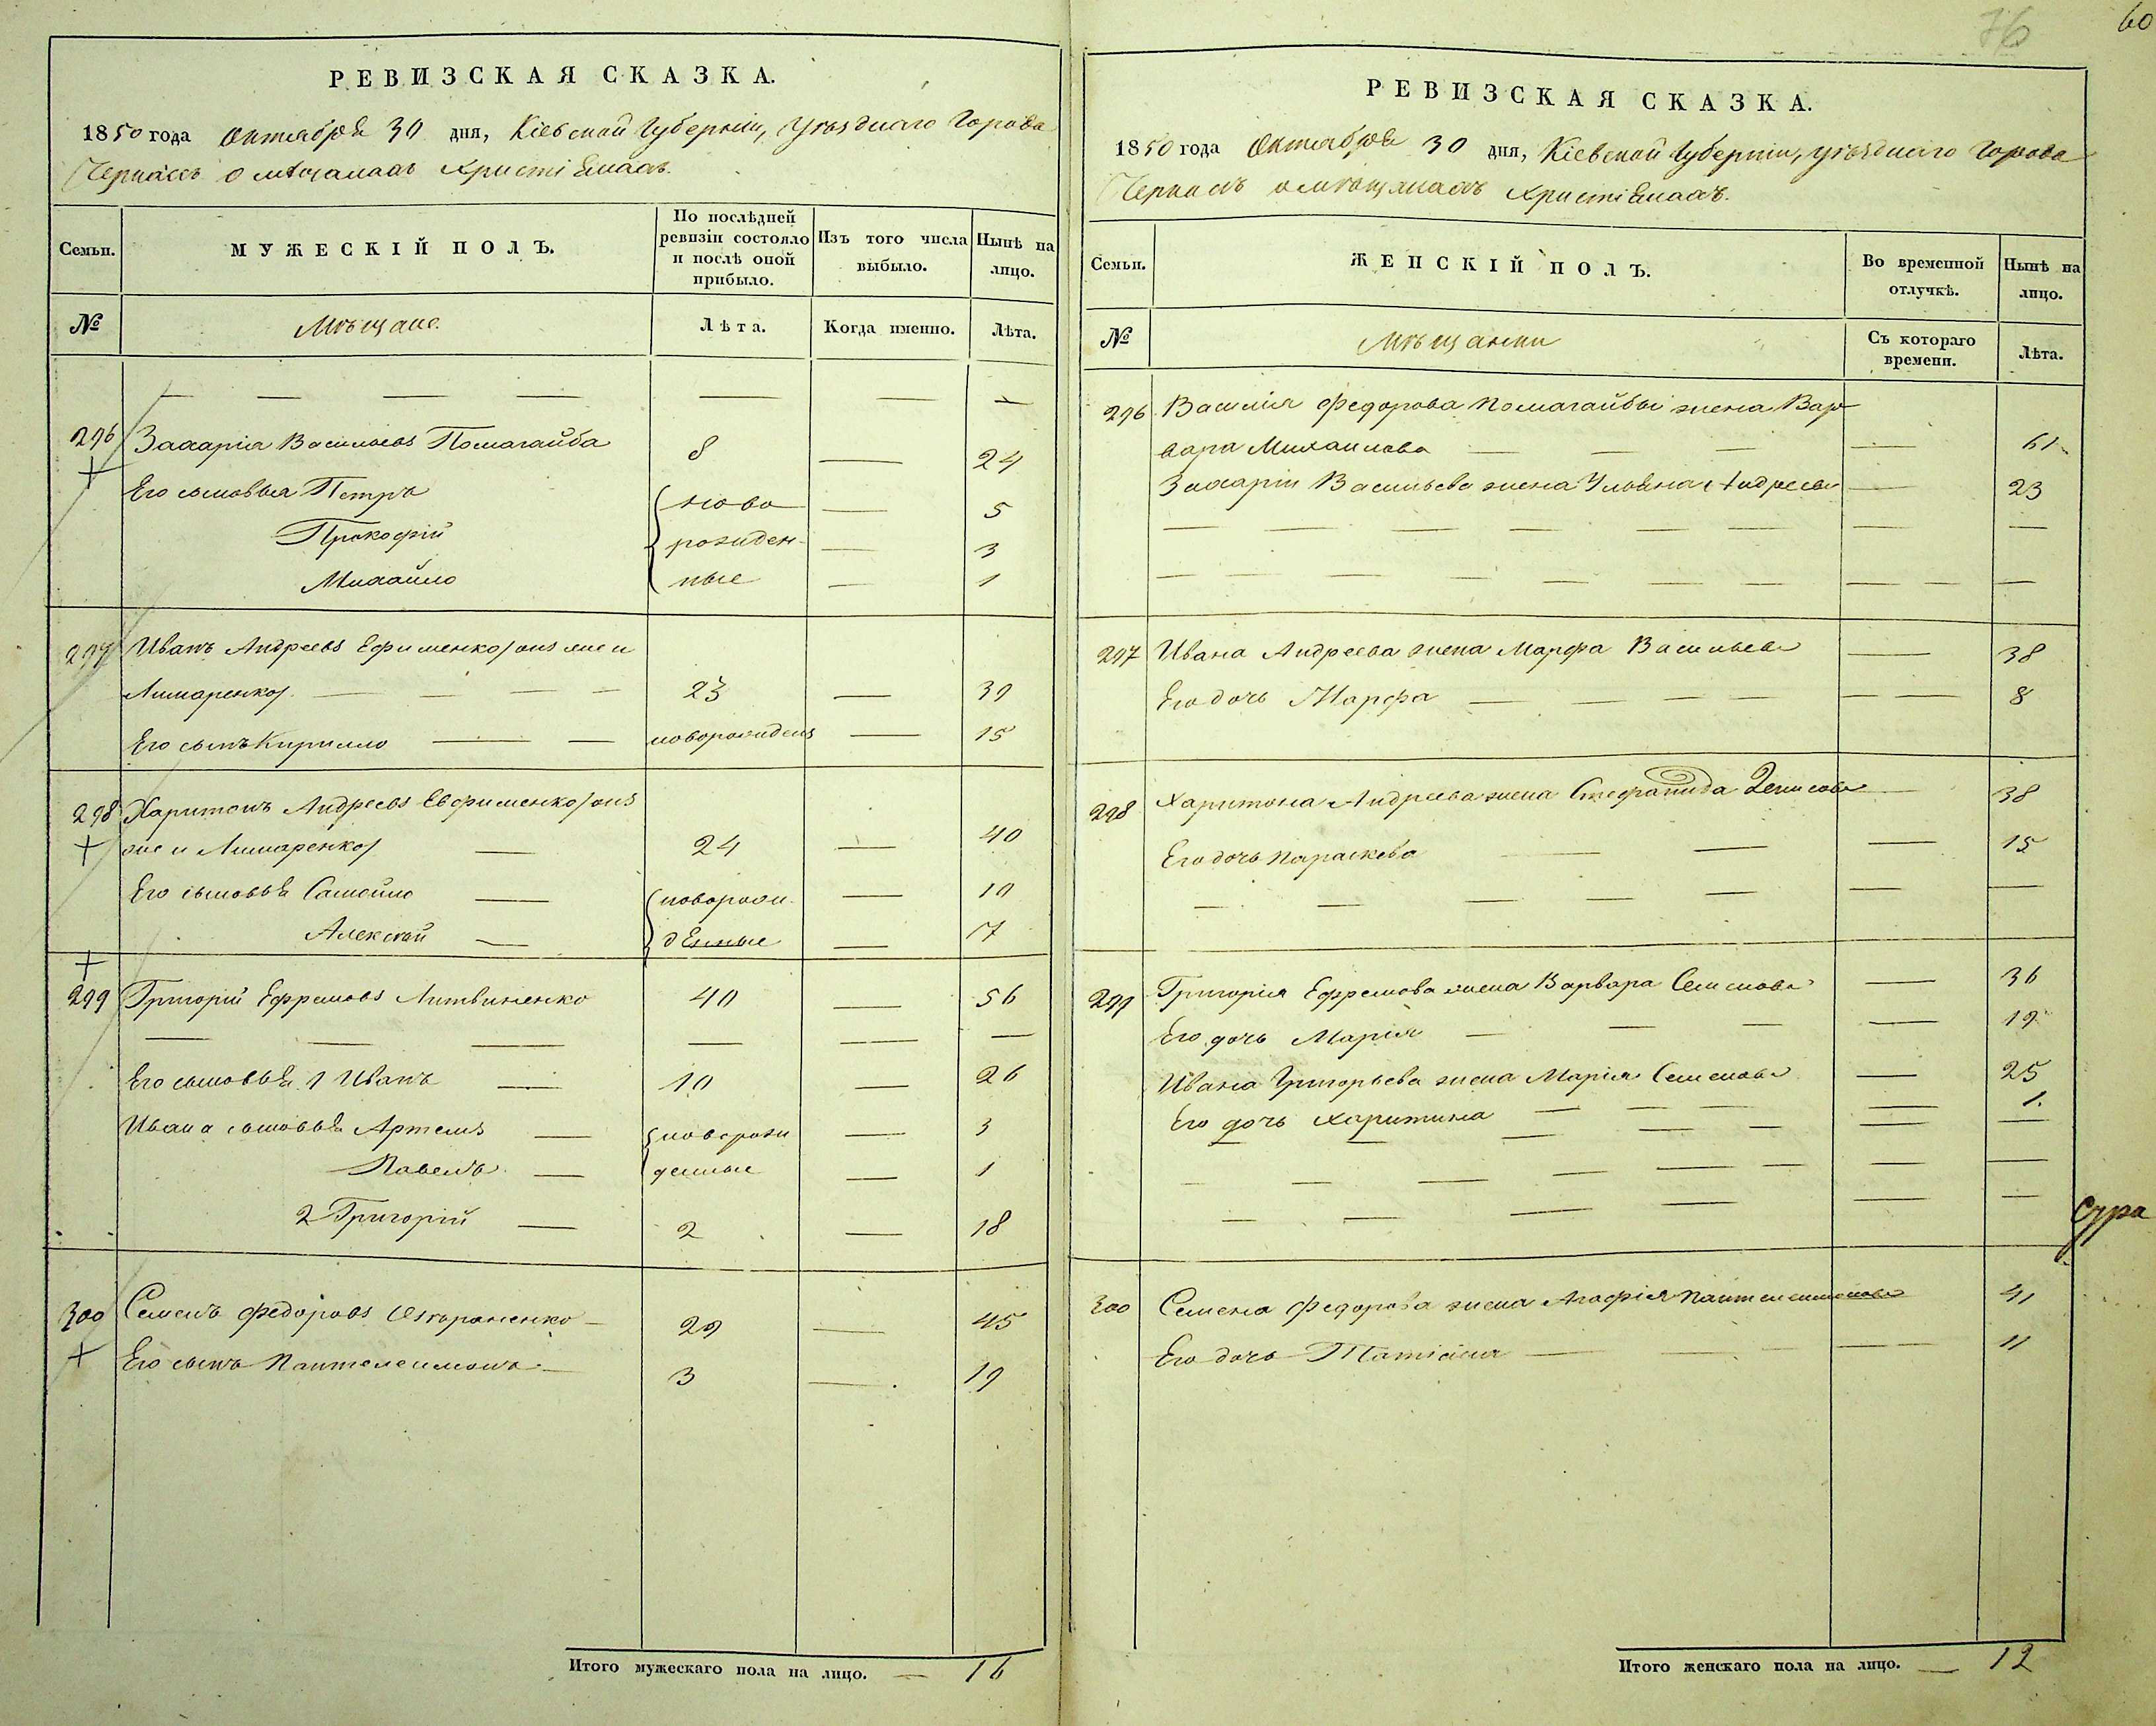 76
60
РЕВИЗСКАЯ СКАЗКА.
1850 года Октября 30 дня, Кіевской Губерніи, Уѣзднаго Города
Черкасъ о мѣщанахъ Христіянахъ.
Семьи.
МУЖЕСКІЙ ПОЛЪ.
По послѣдней ревизіи состояло и послѣ оной прибыло.
Изъ того числа выбыло.
Нынѣ на лицо.
№
Мѣщане.
Лѣта.
Когда именно.
Лѣта.
296 Захарія Васильевъ Помагайба 8 — 24
Его сыновья Петръ ново — 5
Прокофій рожден- — 3
Михайло ные — 1
297 Иванъ Андреевъ Ефименко/онъ же и
Лимаренко/ — 23 — 39
Его сынъ Кирилло — новорожденъ — 15
298 Харитонъ Андреевъ Евфименко/онъ
же и Лимаренко/ — 24 — 40
Его сыновья Самойло — новорож- — 10
Алексѣй — денные — 7
299 Григорій Ефремовъ Литвиненко 40 — 56
Его сыновья 1 Иванъ — 10 — 26
Ивана сыновья Артемъ — поворож — 3
Павелъ — денные — 1
2 Григорій — 2 — 18
300 Семенъ Федоровъ — 29 — 45
Его сынъ Пантелеимонъ — 3 — 19
Итого мужескаго пола на лицо. — 16
РЕВИЗСКАЯ СКАЗКА.
1850 года Октября 30 дня, Кіевской Губерніи, уѣзднаго Города
Черкасъ о мѣщанахъ Христіянахъ.
Семьи.
ЖЕНСКІЙ ПОЛЪ.
Во временной отлучкѣ.
Нынѣ на лицо.
№
Мѣщанки
Съ котораго времени.
Лѣта.
296 Василія Федорова Помагайбы жена Вар
вара Михайлова — 61
Захаріи Васильева жена Ульяна Андреева — 23
297 Ивана Андреева жена Марфа Васильева — 38
Его дочь Марфа — 8
298 Харитона Андреева жена Стефанида Денисова — 38
Его дочь Параскева — 15
299 Григорія Ефремова жена Варвара Семенова — 36
Его дочь Марія — 19
Ивана Григорьева жена Марія Семенова — 25
Его дочь Харитина — 1.
300 Семена Федорова жена Агафія Пантелеимонова 41
Его дочь Татіана — 11
Итого женскаго пола на лицо. — 12